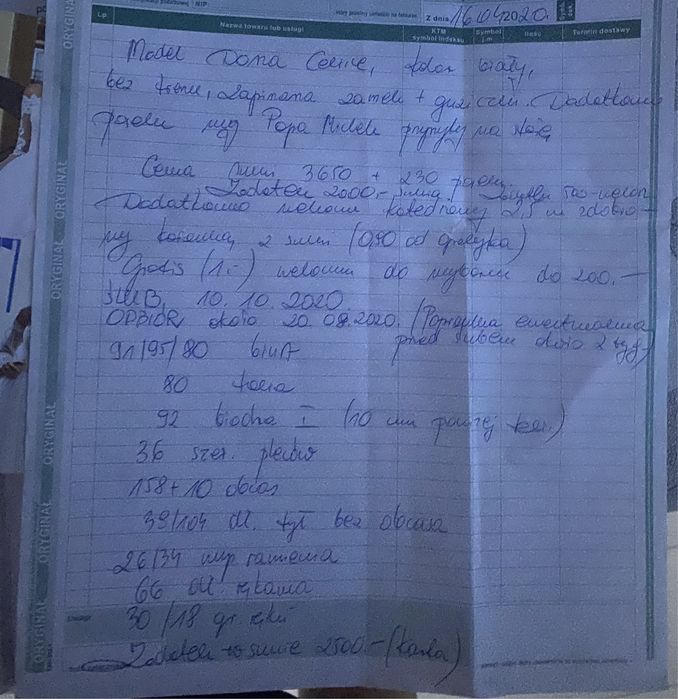 Z dnia 16.04.2020.
Lp. Nazwa towaru lub usługi KTM symbol indeksu Symbol j.m. Ilość Termin dostawy
ORYGINAŁ
Model Dona Cerice, kolor biały,
bez trenu, zapinana zamek + guziczki. Dodatkowo
pasek wg Papa Michele przyszyty na stałe
Cena 3650 + 230 pasek
Zadatek 2000.-
Dodatkowo welonu katedralny 2,5 m zdobio-
ny koronką z (0,90 od grzebyka)
Gratis (1.-) welonu do wyboru do 200.-
ŚLUB. 10.10.2020
ODBIÓR około 20.08.2020. (Poprawka ewentualna
przed ślubem około 2 tyg)
91/95/80 biust
80 talia
92 biodra I (10 cm poniżej)
36 szer. pleców
158+10 obcas
39/104 dł. tył bez obcasa
26/34 wyp ramienia
66 dł. rękawa
30/18 gr. ręki
Zadatek w sumie 2500.- (karta)